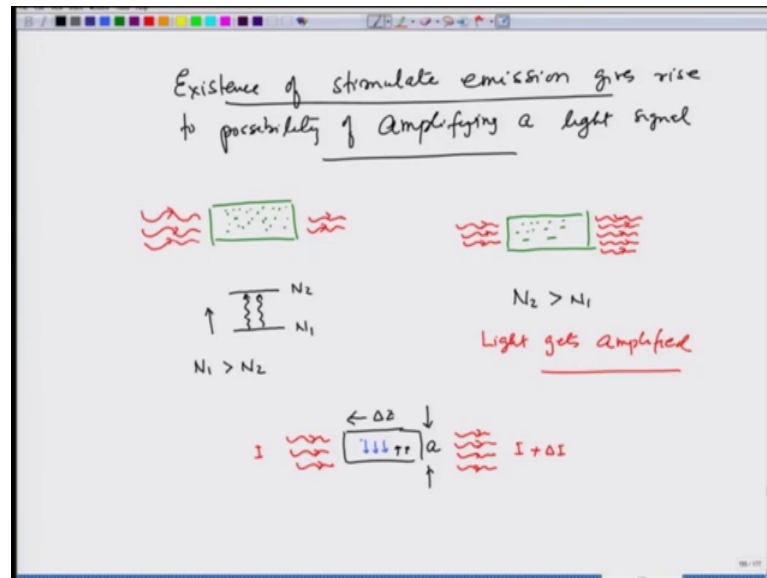 Existence of stimulate emission gives rise
to possibility of amplifying a light signal
N2
N1
N1 > N2
N2 > N1
Light gets amplified
← Δz
a
I
I + ΔI